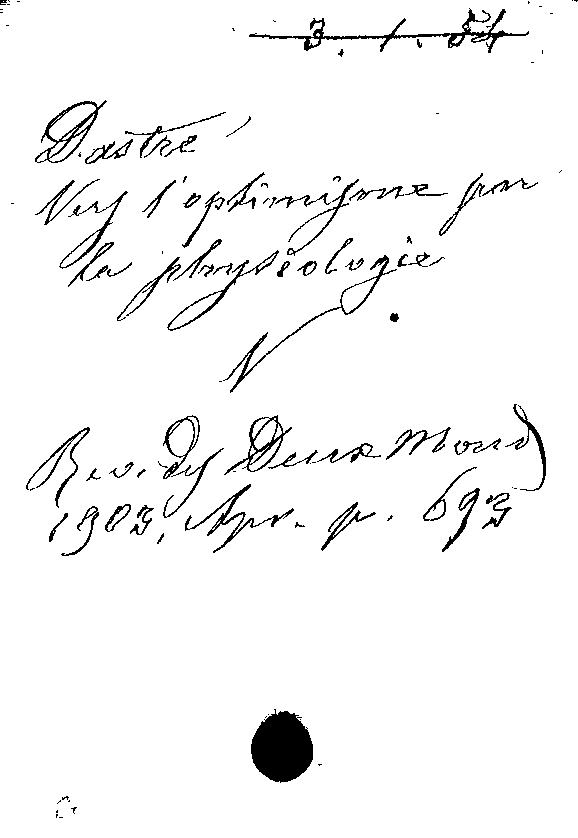 3. 1. 54
Dastre
Vers l'optimisme par
la physiologie
Rev. des Deux Mond
1903, Apr. p. 693